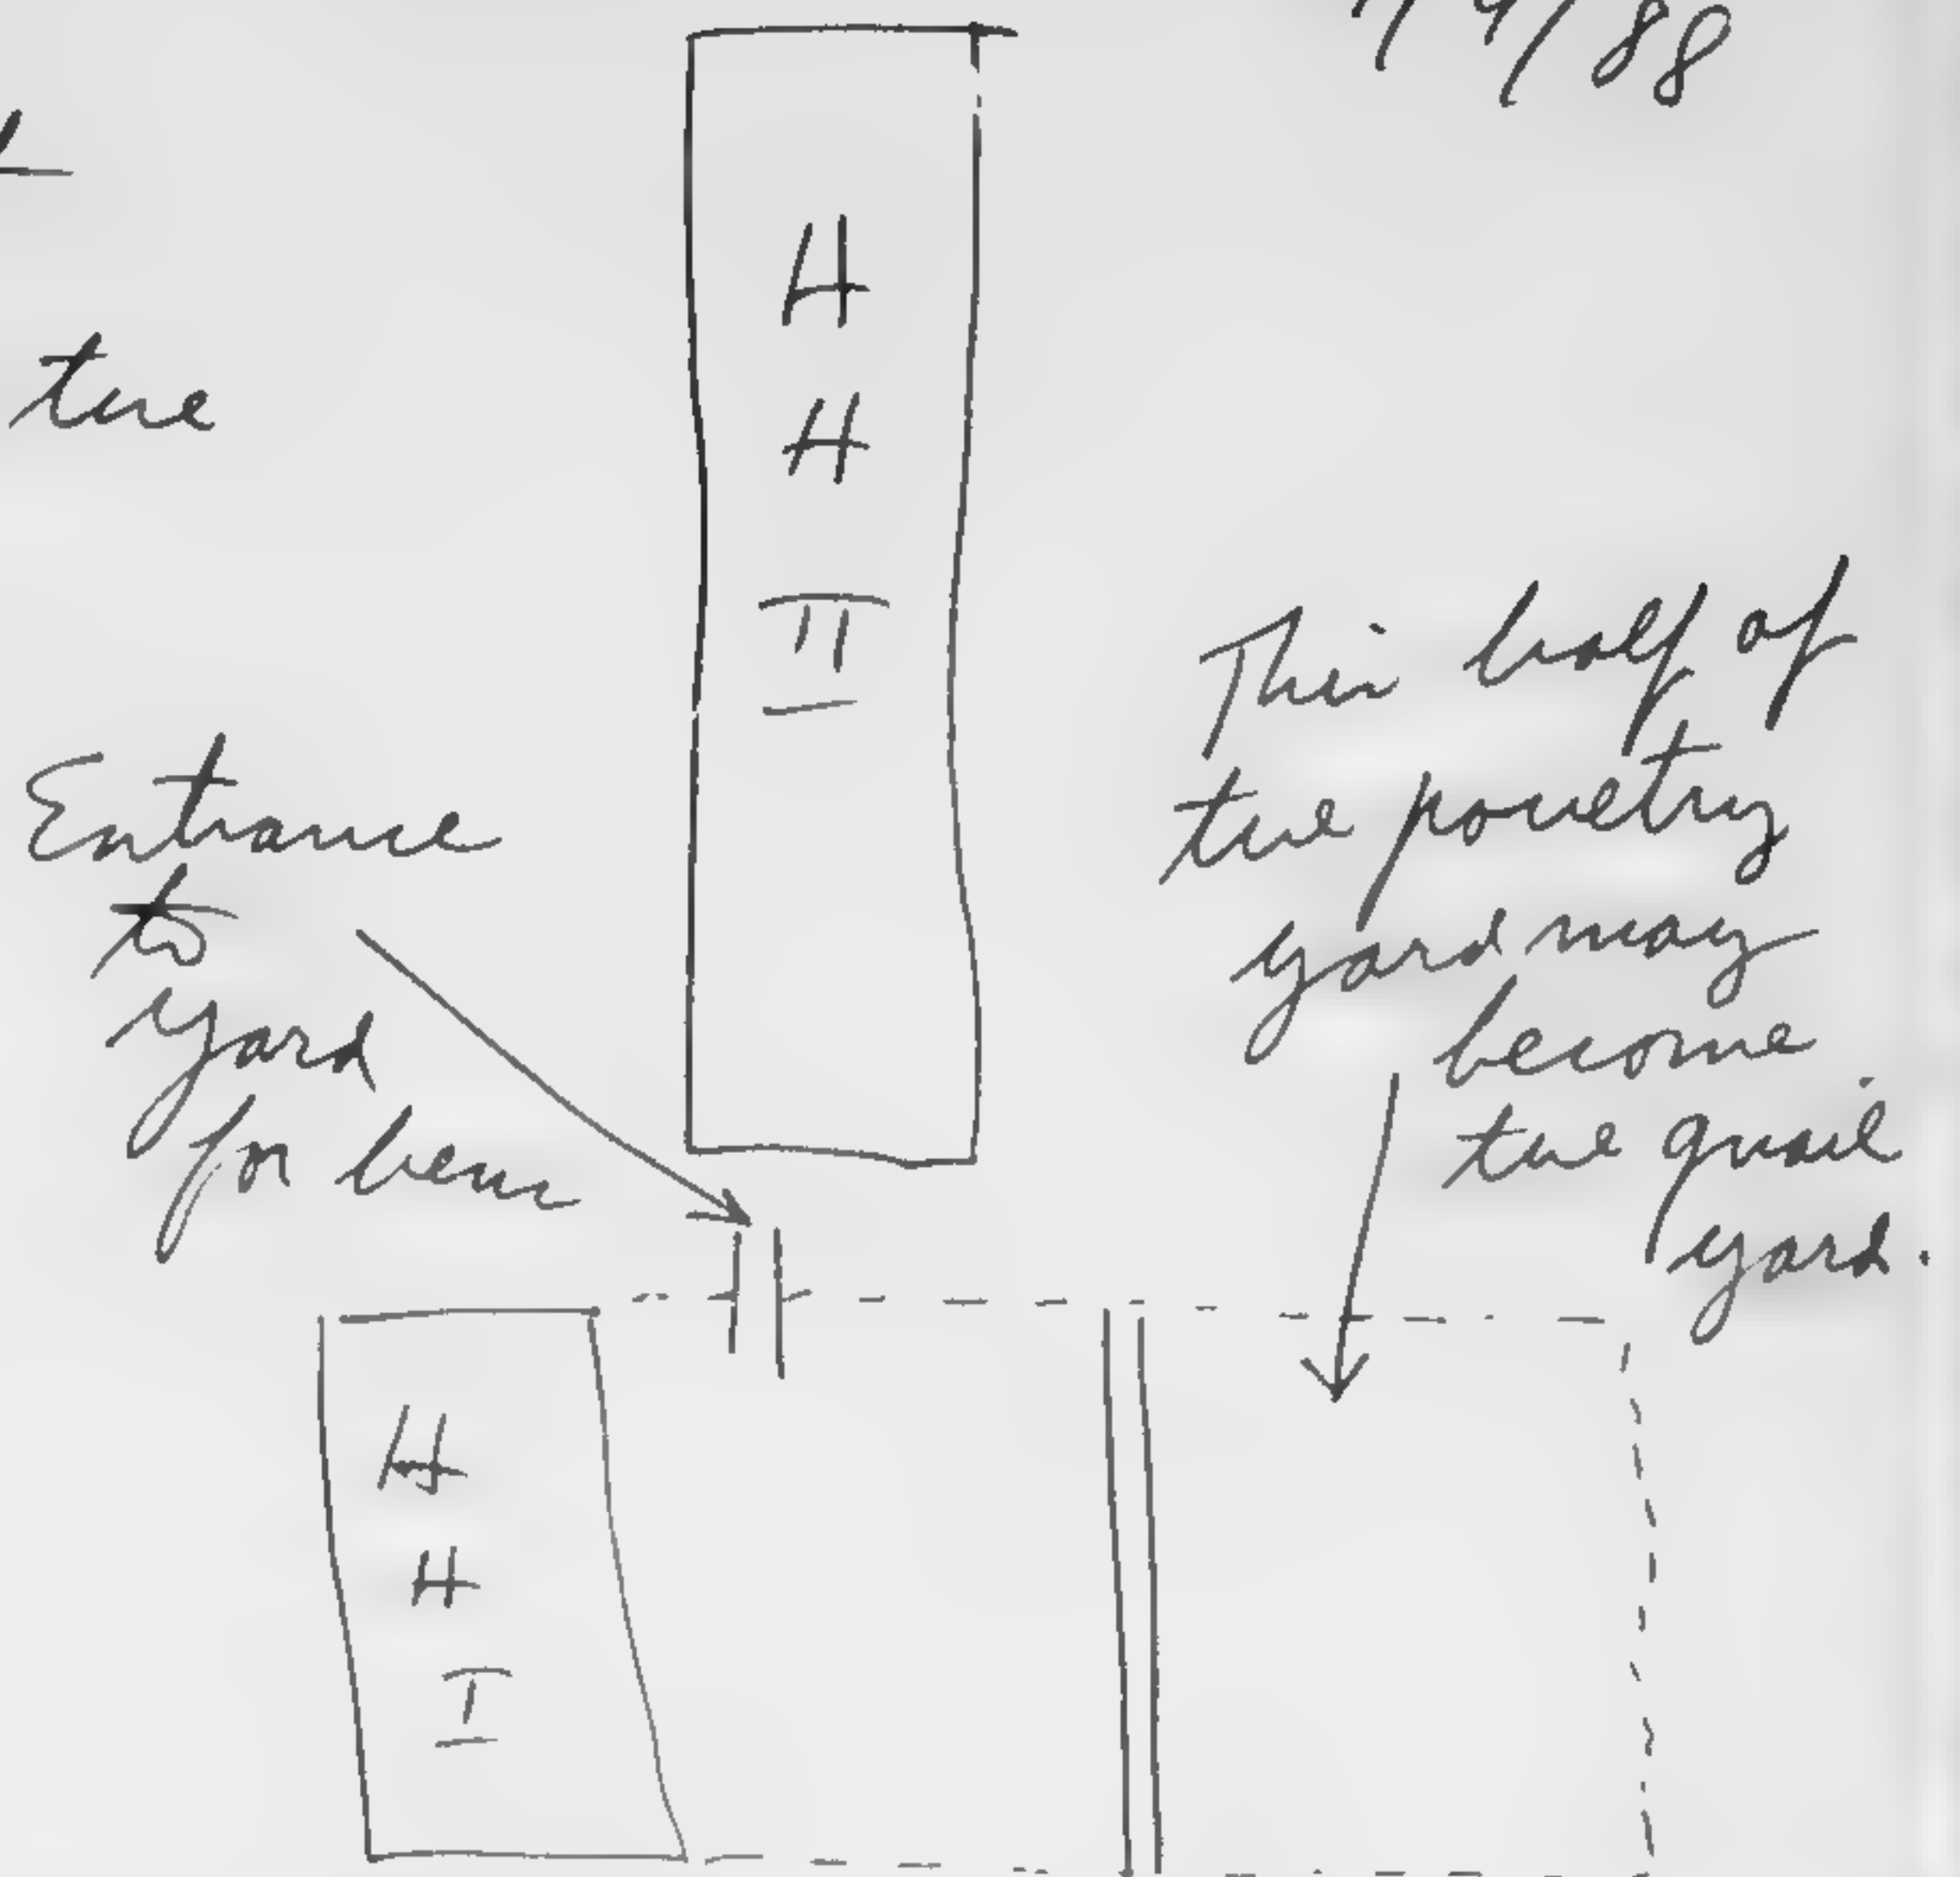 /88
the
H
H
II
This half of
the poultry
yard may
become
the quail
yard.
Entrance
to
yard
for hens
H
H
I